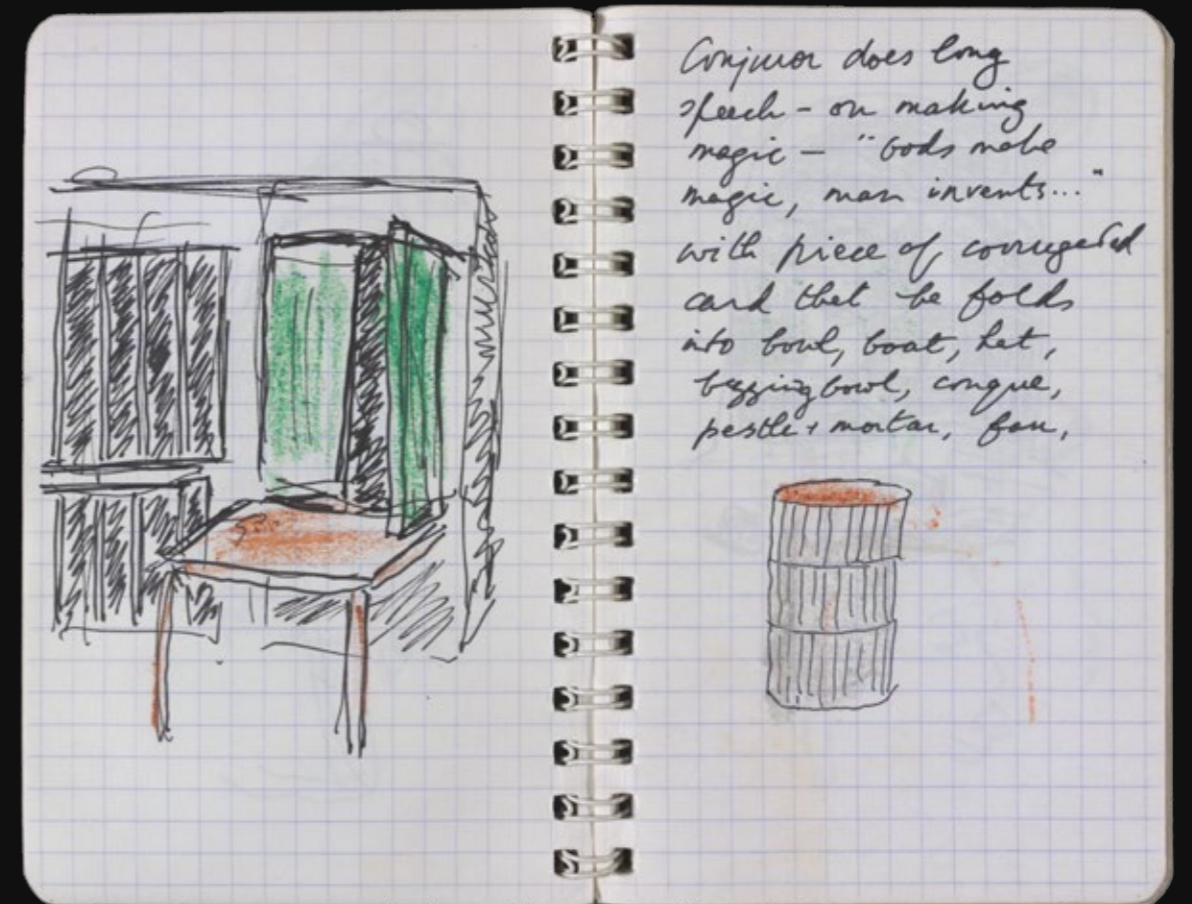 Conjuror does long
speech - on making
magic - "Gods make
magic, man invents..."
with piece of corrugated
card that he folds
into bowl, boat, hat,
begging bowl, conque,
pestle + mortar, fan,